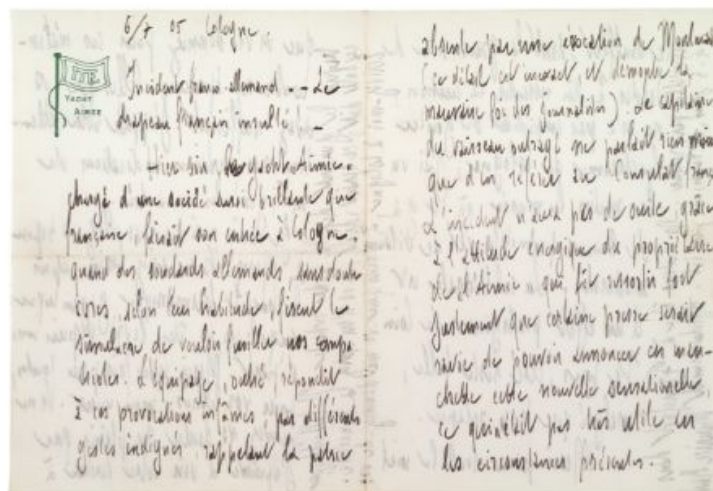 6/7 05 Cologne.
YACHT
AIMÉE
Incident franco-allemand. - Le
drapeau français insulté -
Hier soir, le yacht Aimée,
chargé d'une société aussi brillante que
française, faisait son entrée à Cologne,
quand des soudards allemands, sans doute
ivres, selon leur habitude, firent le
simulacre de vouloir fusiller nos compa
triotes. L'équipage, outré, répondit
à ces provocations infâmes par différents
gestes indignés, rappelant la patrie
absente par une évocation de
(ce détail est inexact et démontre la
mauvaise foi des journalistes) le capitaine
du vaisseau outragé ne parlait rien moins
que d'en référer au Consulat
L'incident n'aura pas de suite grâce
à l'attitude énergique du propriétaire
de l'Aimée qui fit ressortir fort
justement que certaine presse serait
ravie de pouvoir annoncer en man-
chette cette nouvelle sensationnelle,
ce qui n'était pas très utile en
les circonstances présentes.